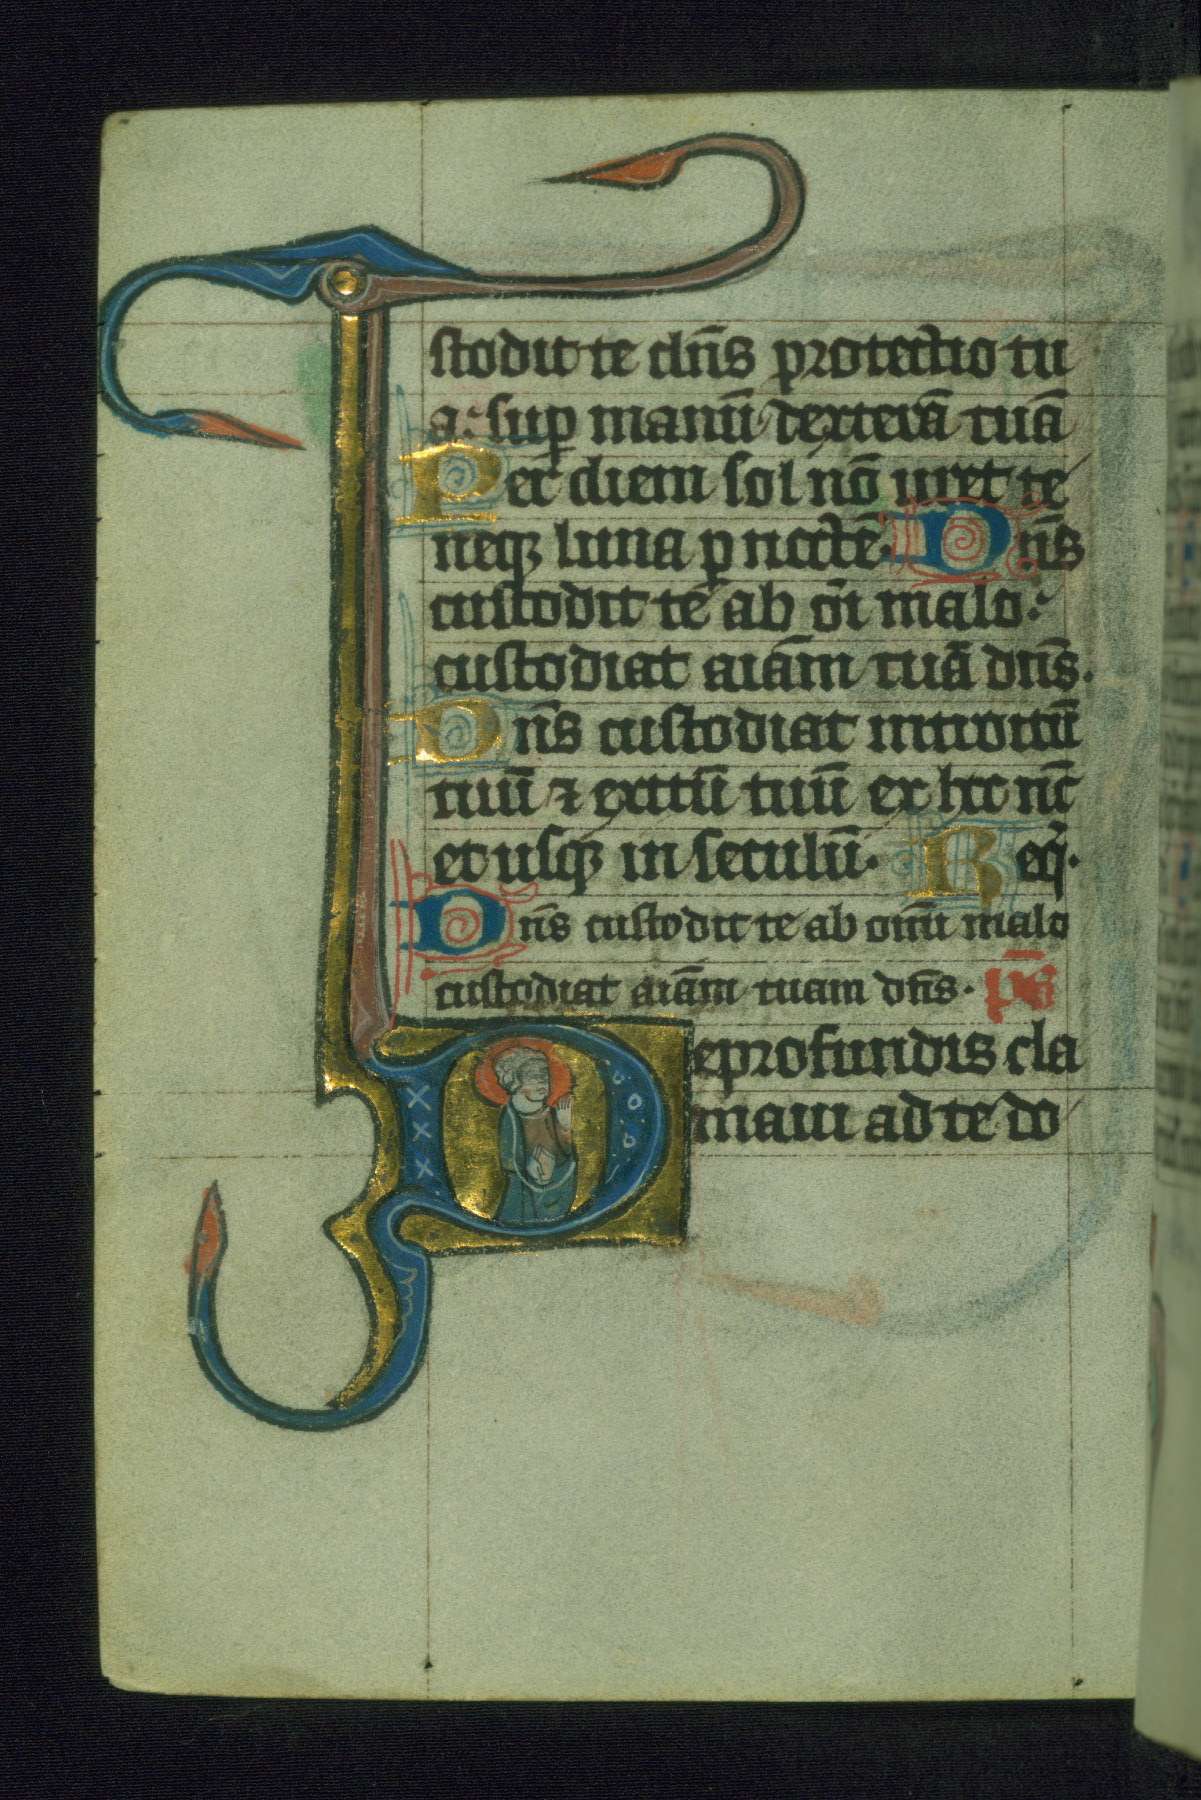 stodit te dn̄s protectio tu
a: sup manū dexterā tuā
Per diem sol nō uret te
neqꝫ luna p noctē. Dn̄s
custodit te ab oī malo:
custodiat aīam tuā dn̄s.
Dn̄s custodiat introitū
tuū ⁊ exitū tuū ex hoc nc̄
et usqꝫ in seculū. Req̄.
Dn̄s custodit te ab omī malo
custodiat aīam tuam dn̄s. ps̄
De profundis cla
maui ad te do